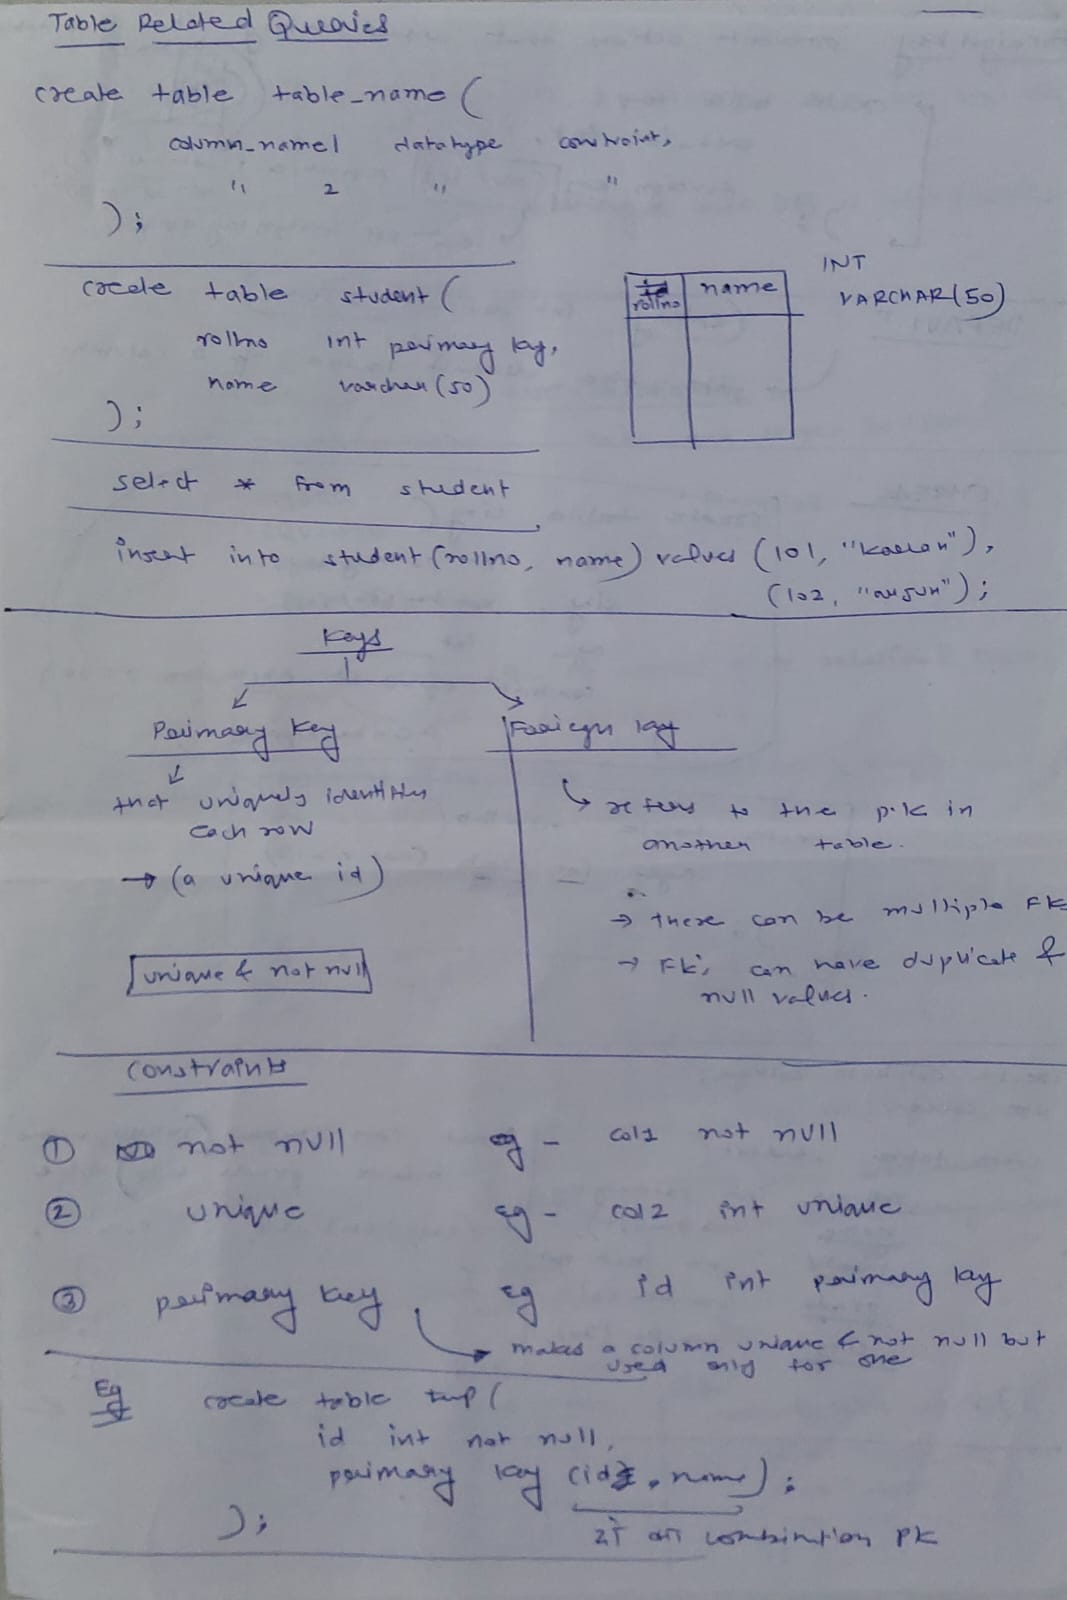 Table Related Queries
create table table_name (
column_name1 datatype constraint,
" 2 " "
);
create table student (
rollno int primary key,
name varchar(50)
);
rollno name
INT
VARCHAR(50)
select * from student
insert into student (rollno, name) values (101, "karan"),
(102, "arjun");
Keys
Primary Key
Foreign key
that uniquely identifies
each row
→ (a unique id)
unique & not null
refers to the p.k in
another table.
→ there can be multiple FK
→ FK's can have duplicate &
null values.
Constraints
① not null eg - col1 not null
② unique eg - col2 int unique
③ primary key eg id int primary key
makes a column unique & not null but
used only for one
Eg create table tmp (
id int not null,
primary key (id, name);
);
combination PK